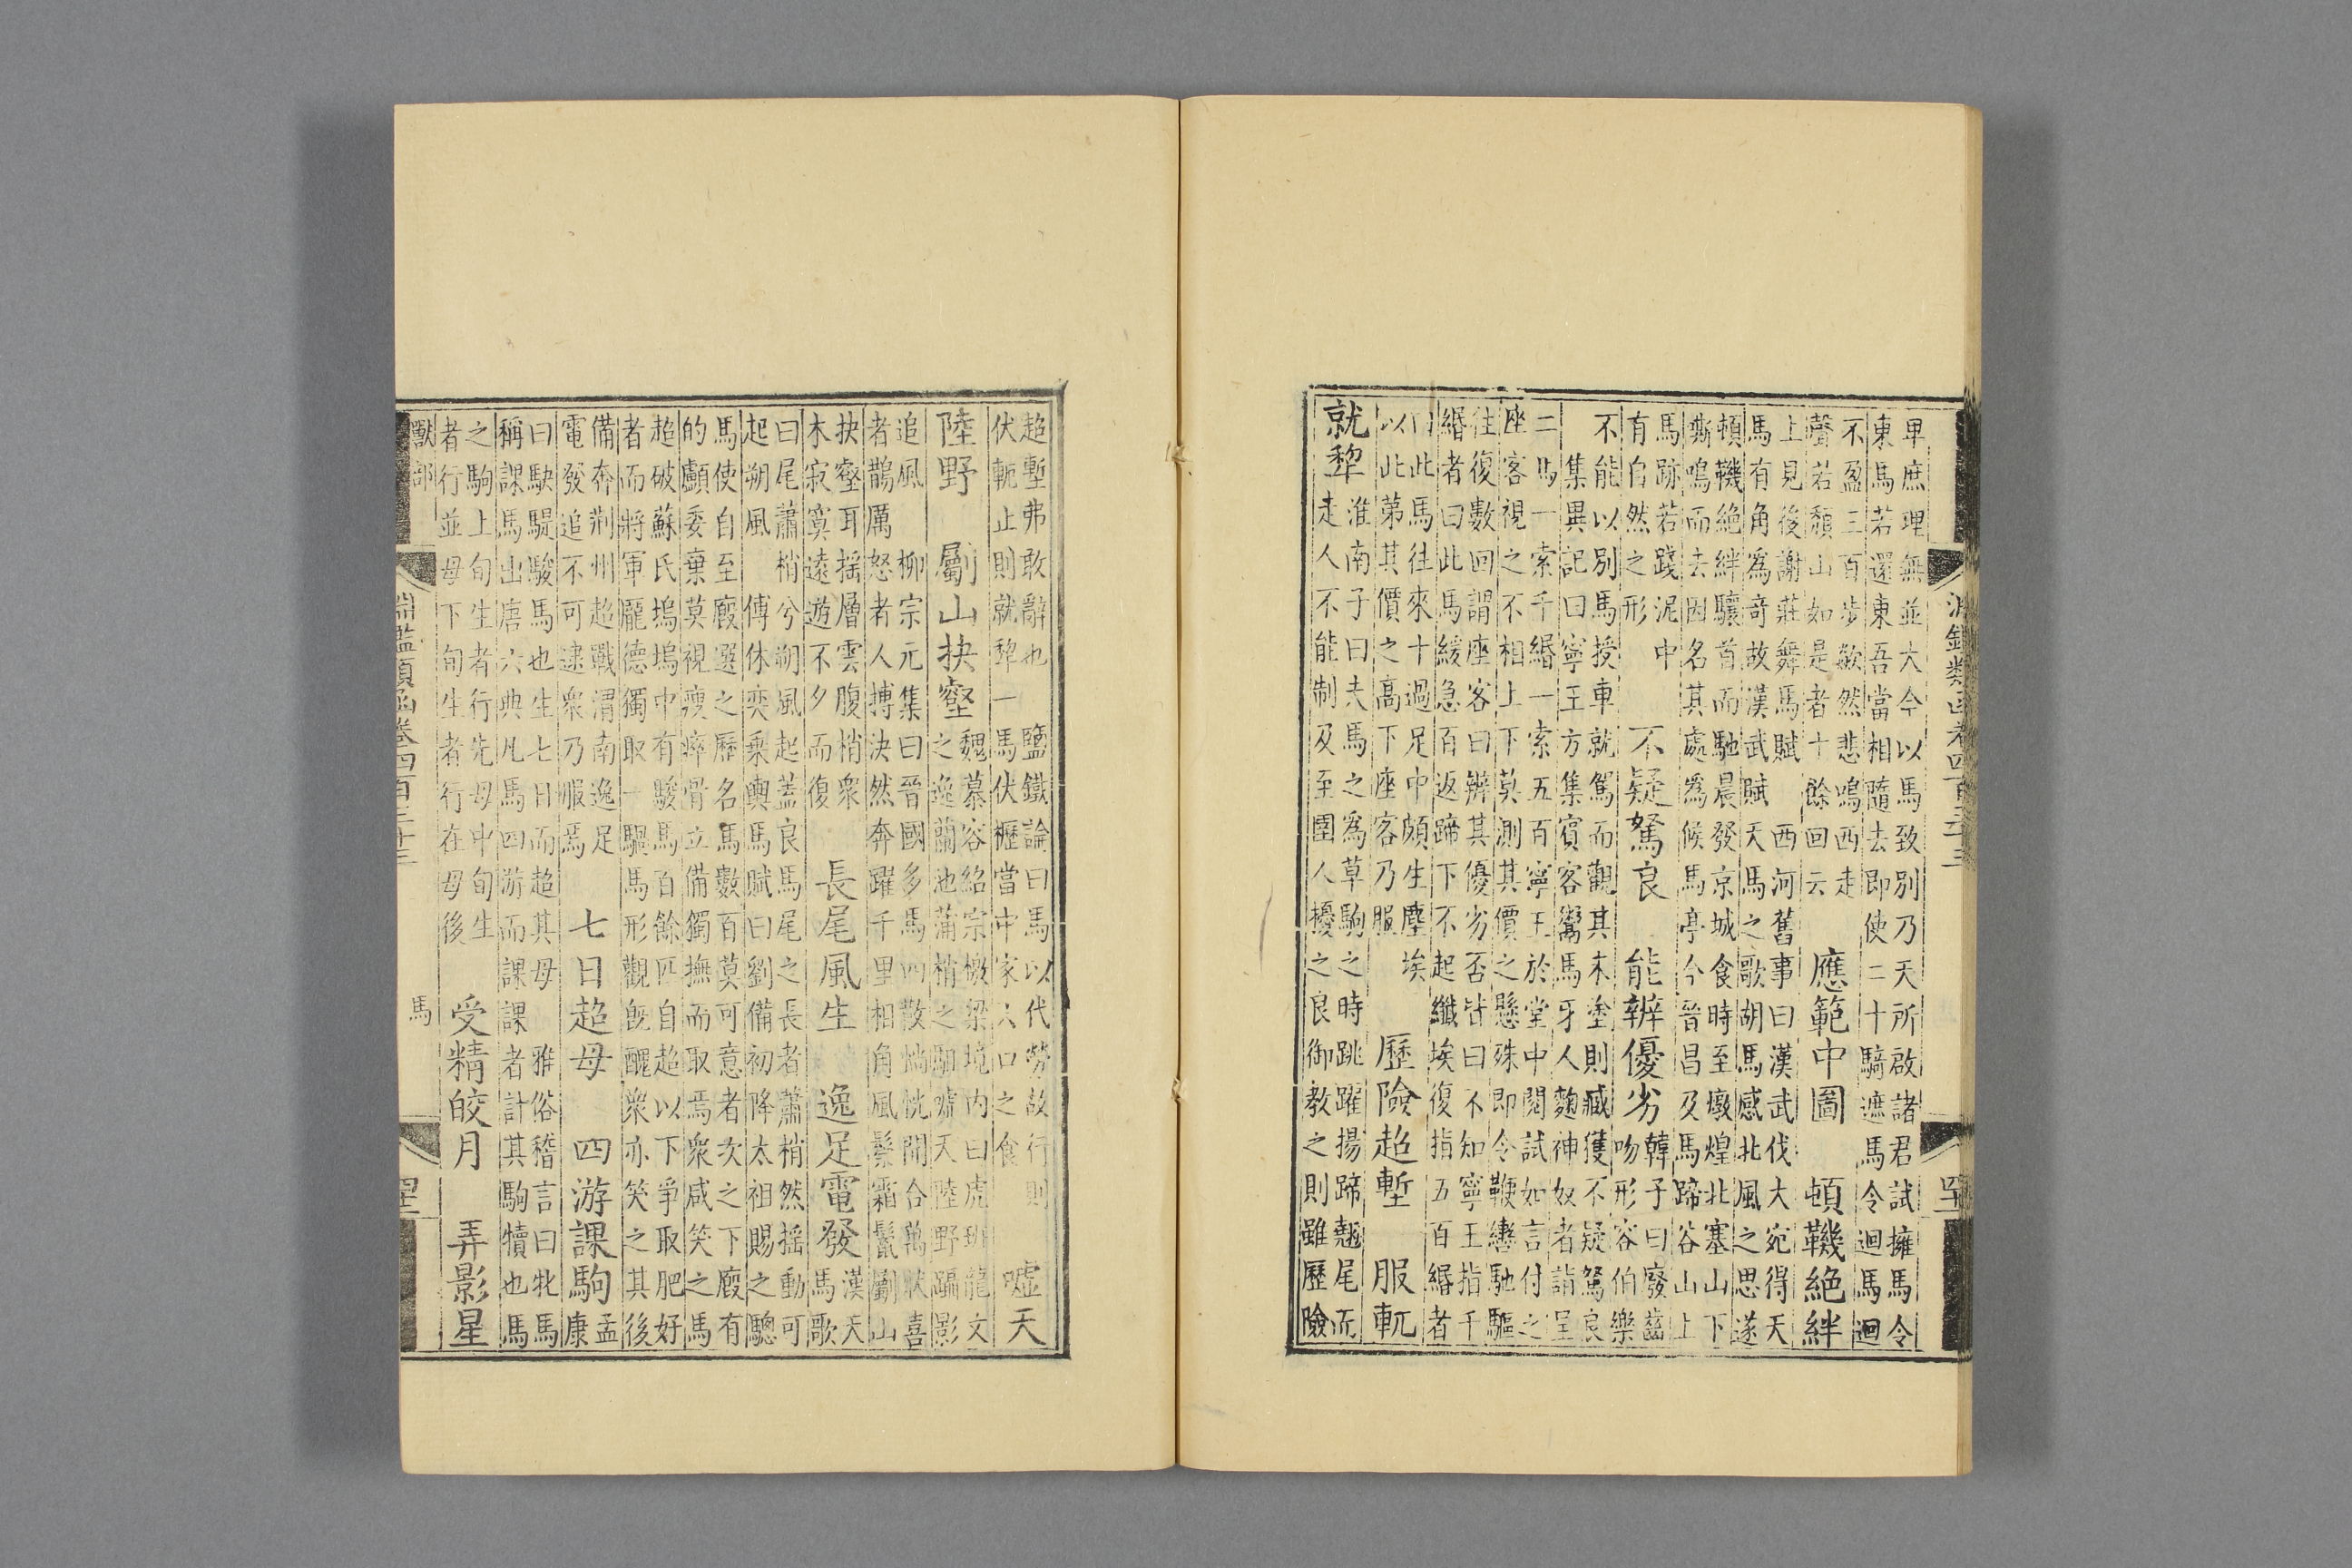 淵鑑類函卷四百三十三
卑庶理無並大今以馬致別乃天所啟諸君試擁馬令
東馬若還東吾當相隨去即使二十騎遮馬令迴馬迴
不盈三百步歘然悲鳴西走
聲若頹山如是者十餘回云
應範中圖
頓鞿絕絆
上見後謝莊舞馬賦
馬有角爲奇故漢武賦
西河舊事曰漢武伐大宛得天
天馬之歌胡馬感北風之思遂
頓鞿絕絆驤首而馳晨發京城食時至墩煌北塞山下
嘶鳴而去因名其處爲候馬亭今晉昌及馬蹄谷山上
馬跡若踐泥中
有自然之形
不疑駑良
能辨優劣
韓子曰廢齒
吻形容伯樂
不能以別馬授車就駕而觀其末塗則臧獲不疑駑良
集異記曰寧王方集賓客鬻馬牙人麴神奴者請呈
二馬一索千緡一索五百寧王於堂中閱試如言付之
座客視之不相上下莫測其價之懸殊即令鞭轡馳驅
往復數回謂座客曰辨其優劣否皆曰不知寧王指千
緡者曰此馬緩急百返蹄下不起纖埃復指五百緡者
曰此馬往來十過足中頗生塵埃
以此第其價之高下座客乃服
歷險超塹
服軏
就犂
淮南子曰夫馬之爲草駒之時跳躍揚蹄翹尾而
走人不能制及至圉人擾之良御教之則雖歷險
超塹弗敢辭也
伏軛止則就犂
鹽鐵論曰馬以代勞故行則
一馬伏櫪當中家六口之食
噓天
陸野
劚山抉壑
魏慕容紹宗檄梁境內曰虎班龍文
之逸蘭池蒲梢之駟噓天陸野躡影
追風
者鵲厲
柳宗元集曰晉國多馬四散惝恍開合萬狀喜
怒者人搏決然奔躍千里相角風鬃霜鬣劚山
抉壑耳摇層雲腹梢衆
木寂寞遠遊不夕而復
長尾風生
逸足電發
漢天
馬歌
曰尾蕭梢兮朔風起蓋良馬尾之長者蕭梢然摇動可
起朔風
傅休奕乘輿馬賦曰劉備初降太祖賜之驄
馬使自至廄選之歷名馬數百莫可意者次之下廄有
的顱委棄莫視瘦瘁骨立備獨撫而取焉衆咸笑之馬
超破蘇氏塢塢中有駿馬百餘匹自超以下爭取肥好
者而將軍龐德獨取一騧馬形觀既醜衆亦笑之其後
備奔荆州超戰渭南逸足
電發追不可逮衆乃服焉
七日超母
四游課駒
孟
康
曰駃騠駿馬也生七日而超其母
稱課馬出唐六典凡馬四游而課課者計其駒犢也馬
雅俗稽言曰牝馬
之駒上旬生者行先母中旬生
者行並母下旬生者行在母後
受精皎月
弄影星
獸部
淵鑑類函卷四百三十三
馬